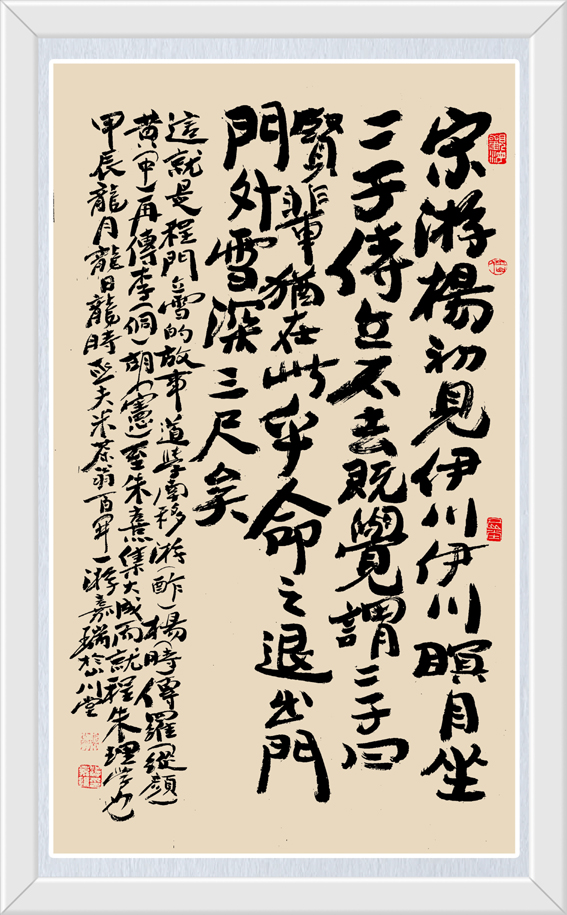 宋游楊初見伊川伊川瞑目坐
二子侍立不去既覺謂二子曰
賢輩猶在此乎命之退出門
門外雪深三尺矣
這就是程門立雪的故事道學南移游(酢)楊時傳羅(縱顏)
黃(中)再傳李(侗)胡(憲)至朱熹集大成而就程朱理學也
甲辰龍月龍日龍時夫米茶翁百一游嘉瑞川堂